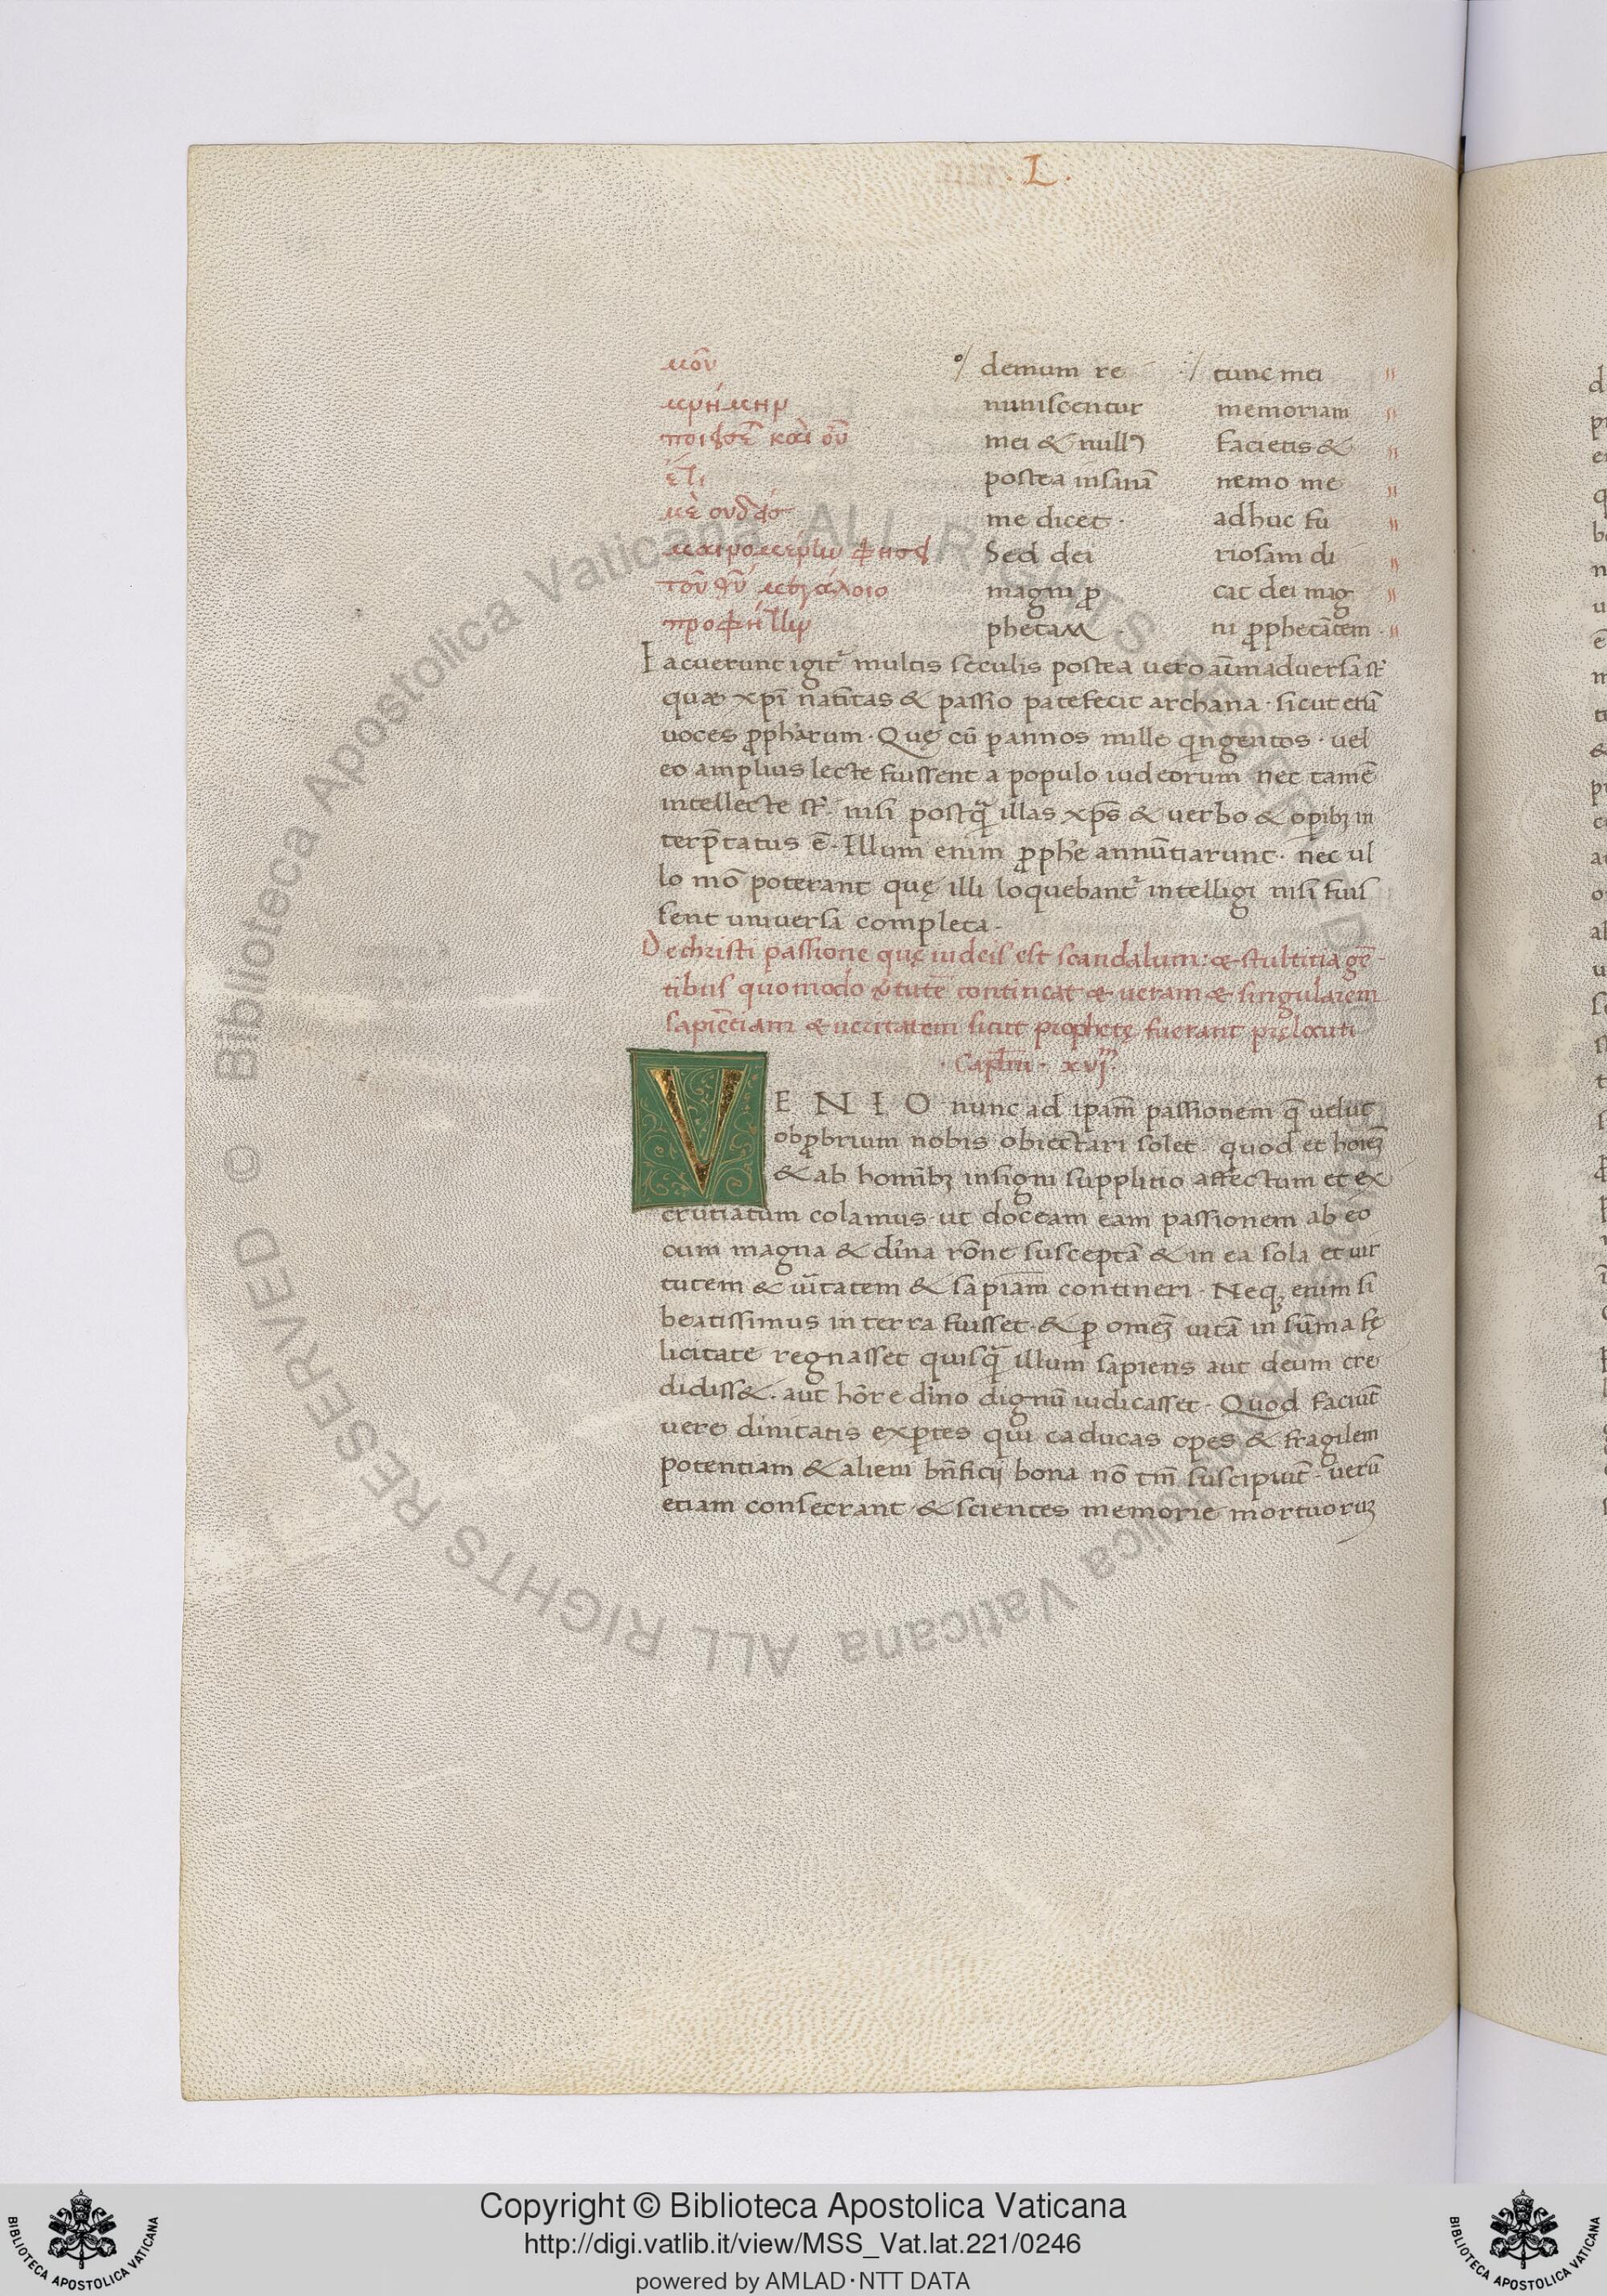 . L .
μοῦ demum re tunc mei
μνήμην niniscentur memoriam
ποιήσετε καὶ οὐ mei & null⁊ facietis &
ἔτι postea insanā nemo me
με ουδεὶσ me dicet · adhuc fu
μαινομενην φησει Sed dei riosam di
τοῦ θῦ μεγάλοιο magni ꝓ cat dei mag
προφήτιν phetam · ni ꝓphetātem ·
Iacuerunt igit᷑ multis seculis postea vero aīmadversa st᷑
quæ xpī natīitas & passio patefecit archana · sicut etiā
uoces ꝓpharum · Quę cū ꝑ annos mille qngentos · uel
eo amplius lecte fuissent a populo iudeorum nec tamē
intellecte st᷑ · nisi postq̄ illas xp̄s & verbo & opibꝫ in
terp̄tatus ē · Illum enim ꝓphe annūtiarunt · nec ul
lo mō poterant quę illi loquebant᷑ intelligi nisi fuis
sent universa completa ·
De christi passione quę iudeis est scandalum : & stultitia gē
tibus quomodo v̓tutē contineat & veram & singularem
sapiētiam & veritatem sicut prophetę fuerant pręlocuti
· Capl̄m · xvj ·
VENIO nunc ad ipam̄ passionem q̄ uelut
obꝓbrium nobis obiectari solet · quod et hoīeꝫ
& ab homībꝫ insigni supplitio affectum et ex
crutiatum colamus · ut doceam eam passionem ab eo
cum magna & diīna rōne susceptā & in ea sola et uir
tutem & ūitatem & sapiam̄ contineri · Neqꝫ enim si
beatissimus in terra fuisset · & ꝑ omeꝫ uitā in sūma fę
licitate regnasset quisq̄ illum sapiens aut deum cre
didiss& · aut hōre diīno dignū iudicasset · Quod faciūt
vere diīnitatis exꝑtes qui caducas opes & fragilem
potentiam & alieni bn̄ficij bona nō tm̄ suscipiūt · uerū
etiam consecrant & scientes memorie mortuoruꝫ
Copyright © Biblioteca Apostolica Vaticana
http://digi.vatlib.it/view/MSS_Vat.lat.221/0246
powered by AMLAD·NTT DATA
BIBLIOTECA APOSTOLICA VATICANA
BIBLIOTECA APOSTOLICA VATICANA
© Biblioteca Apostolica Vaticana ALL RIGHTS RESERVED
© Biblioteca Apostolica Vaticana ALL RIGHTS RESERVED